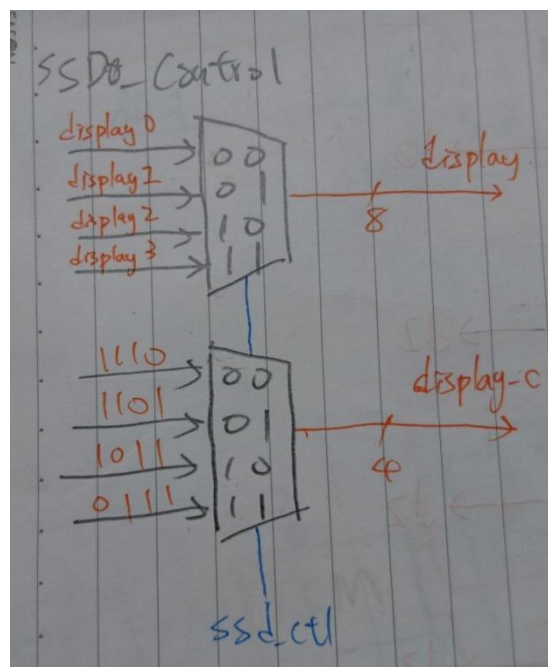 SSD_Control
display 0
display 1
display 2
display 3
00
01
10
11
display
8
1110
1101
1011
0111
00
01
10
11
display_c
4
ssd_ctl